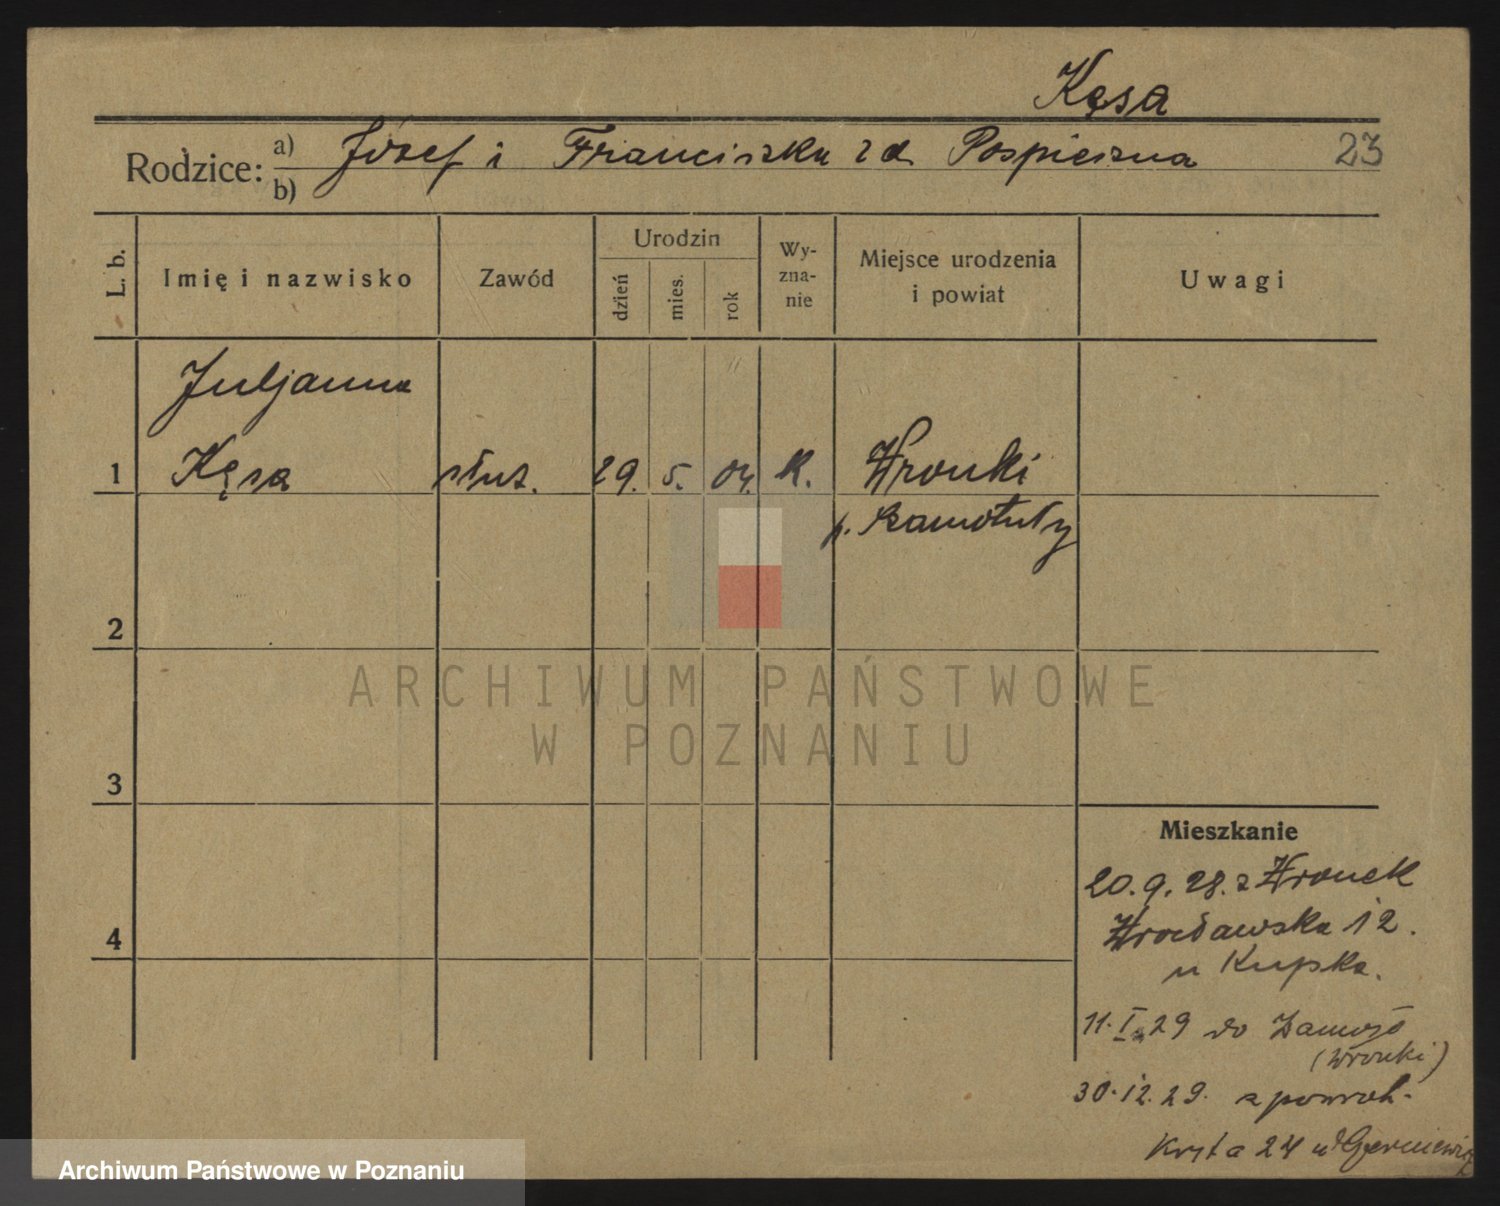 Kęsa
Rodzice: a) Józef i Franciszka zd. Pospieszna 23
b)
L. b.
Imię i nazwisko
Zawód
Urodzin
dzień
mies.
rok
Wy-
zna-
nie
Miejsce urodzenia
i powiat
Uwagi
Juljanna
1 Kęsa służ. 29. 5. 04. K. Wronki
p. Szamotuły
2
3
4
Mieszkanie
20.9.28. z Wronek
Wrocławska 12.
u Kupka.
11.I.29 do Zamość
(Wronki)
30.12.29. z powrot.
Kryta 24 u
ARCHIWUM PAŃSTWOWE
W POZNANIU
Archiwum Państwowe w Poznaniu